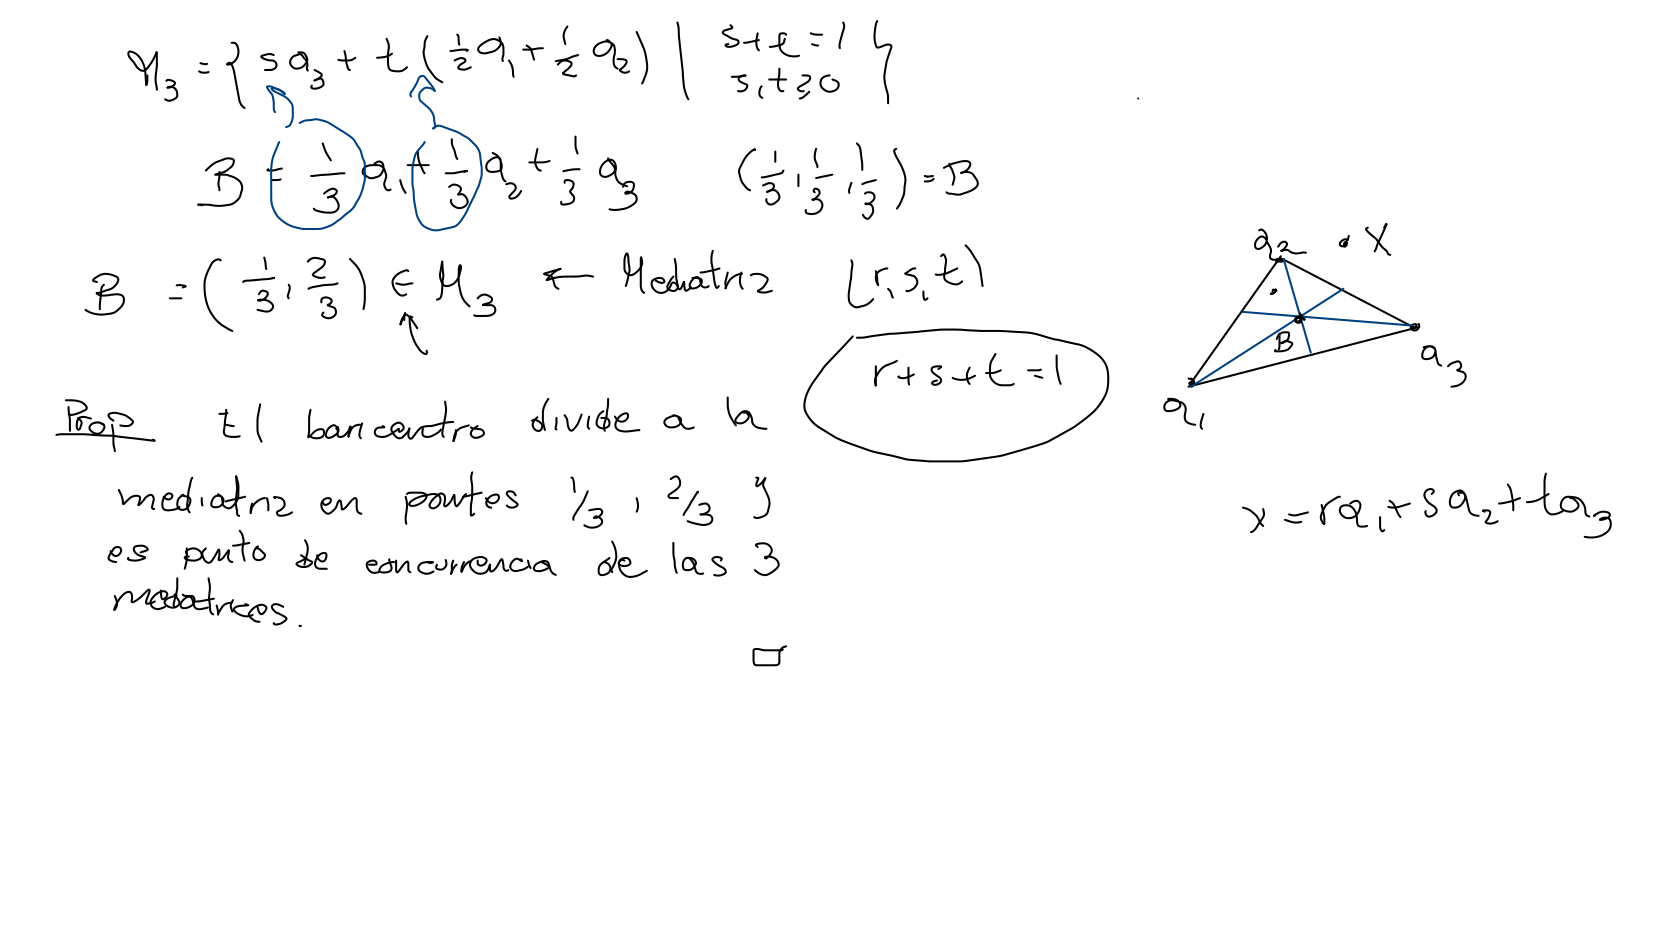 M₃ = { s a₃ + t ( 1/2 a₁ + 1/2 a₂ ) | s+t=1 s,t≥0 }
B = 1/3 a₁ + 1/3 a₂ + 1/3 a₃ (1/3, 1/3, 1/3) = B
B = (1/3, 2/3) ∈ M₃ ← Mediatriz (r,s,t)
r+s+t=1
Prop El baricentro divide a la
mediatriz en partes 1/3, 2/3 y
es punto de concurrencia de las 3
mediatrices.
□
a₂ X
B
a₃
a₁
x = ra₁ + sa₂ + ta₃